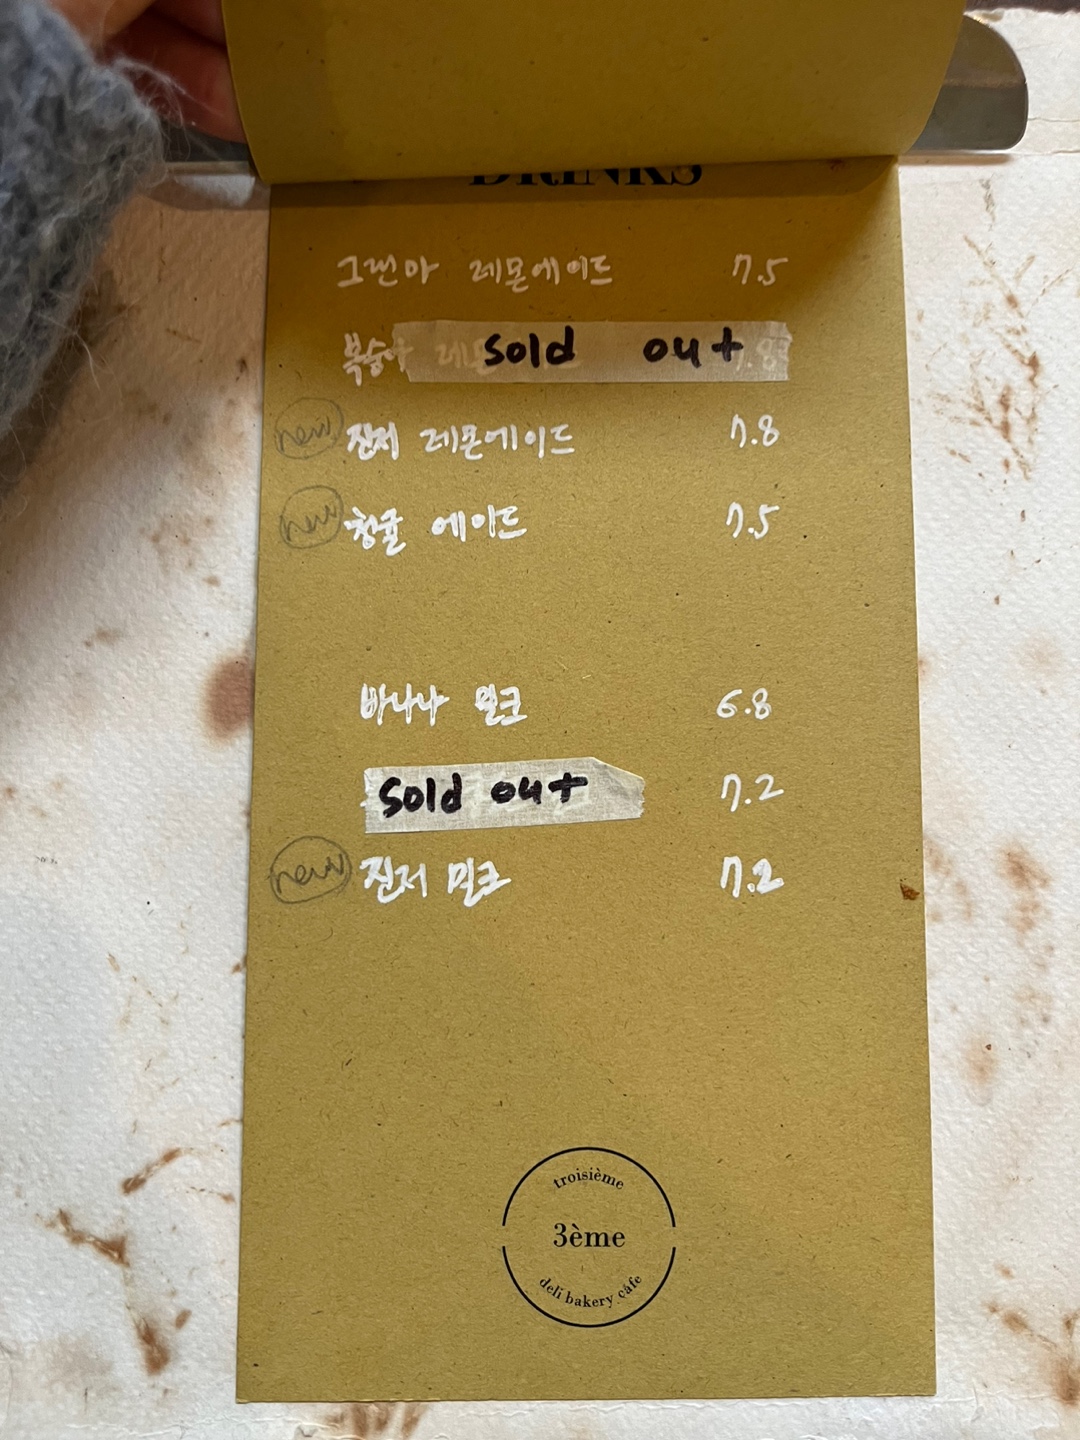 DRINKS
그랜마 레몬에이드 7.5
복숭아 sold out 7.8
new 진저 레몬에이드 7.8
new 청귤 에이드 7.5
바나나 밀크 6.8
sold out 7.2
new 진저 밀크 7.2
troisième
3ème
deli bakery cafe